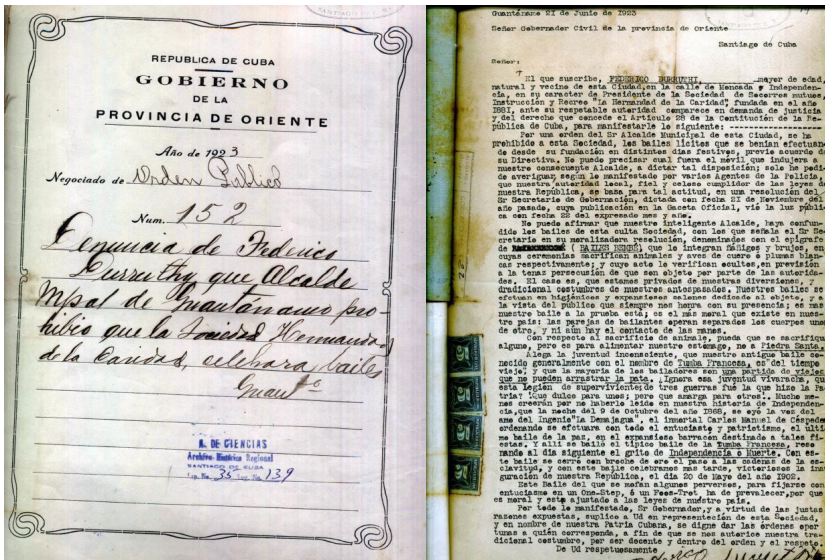 REPUBLICA DE CUBA
GOBIERNO
DE LA
PROVINCIA DE ORIENTE
Año de 1923
Negociado de Orden Publico
Num. 152
Denuncia de Federico
Durruthy que Alcalde
Mpal de Guantánamo pro-
hibio que la Sociedad Hermandad
de la Caridad, celebrara bailes
A. DE CIENCIAS
Archivo Histórico Regional
SANTIAGO DE CUBA
Leg. No. 35 Exp. No. 139
Guantánamo 21 de Junio de 1923
Señor Gobernador Civil de la provincia de Oriente
Santiago de Cuba
Señor:
El que suscribe, FEDERICO DURRUTHI, mayor de edad,
natural y vecino de esta Ciudad,en la calle de Moncada e Independen-
cia, en su caracter de Presidente de la Sociedad de Socorros mutuos,
Instrucción y Recreo "La Hermandad de la Caridad", fundada en el año
1881, ante su respetable autoridad comparece en demanda de justicia
y del derecho que concede el Artículo 28 de la Contitución de la Re-
pública de Cuba, para manifestarle lo siguiente: ----------
Por una orden del Sr Alcalde Municipal de esta Ciudad, se ha
prohibido a esta Sociedad, los bailes lícitos que se benían efectuan-
do desde su fundación en distintos días festivos, previo acuerdo de
su Directiva. No puede precisar cual fuera el móvil que indujera a
nuestro consecuente Alcalde, a dictar tal disposición; solo ha podi-
do averiguar, según lo manifestado por varios Agentes de la Policía,
que nuestra autoridad local, fiel y celoso cumplidor de las leyes de
nuestra República, se basa para tal actitud, en una resolución del
Sr Secretario de Gobernación, dictada con fecha 21 de Noviembre del
año pasado, cuya publicación en la Gaceta Oficial, vió la luz públi-
ca con fecha 22 del expresado mes y año.
No puede afirmar que nuestro Inteligente Alcalde, haya confun-
dido los bailes de esta culta Sociedad, con los que señala el Sr Se-
cretario en su moralizadora resolución, denominados con el epígrafe
de ( BAILES BEMBÉ) que lo integran ñáñigos y brujos, en
cuyas ceremonias sacrifican animales y aves de cuero o plumas blan-
cas respectivamente; y cuyo acto lo verifican ocultos,en previsión
a la tenaz persecusión de que son objeto por parte de las autorida-
des. El caso es, que estamos privados de nuestras diversiones, y
tradicional costumbres de nuestros antepasados. Nuestros bailes se
efectuan en higiénicos y expansivos salones dedicado al objeto, y a
la vista del público que siempre nos honra con su presencia; es mas
nuestro baile a la prueba está; es el más moral que existe en nues-
tro país: las parejas de bailantes operan separados los cuerpos unos
de otro, y ni aún hay el contacto de las manos.
Con respecto al sacrificio de animale, pueda que se sacrifique
alguno, pero es para alimentar nuestro estómago, no a Piedra Santa.
Alega la juventud inconsciente, que nuestro antiguo baile co-
nocido generalmente con el nombre de Tumba Francesa, es del tiempo
viejo; y que la mayoria de los bailadores son una partida de viejos
que no pueden arrastrar la pata. Ignora esa juventud vivaracha, que
esta legión de superviviente;de tres guerras fué la que hizo la Pa-
tria? Que dulce para unos; pero que amarga para otros!. Mucho me-
nos creerán por no haberlo leido en nuestra historia de Independen-
cia,que la noche del 9 Octubre del año 1868, se oyó la voz del
amo del Ingenio"La Demajagua", el inmortal Carlos Manuel de Céspedes
ordenando se efectuara con todo el entuciasto y patrietismo, el ulti
mo baile de la paz, en el expansivo barracón destinado a tales fi-
estas. Y allí se bailó el típico baile de la Tumba Francesa, reso-
nando al día siguiente el grito de Independencia o Muerte. Con es-
e baile se cerró con broche de oro el paso a las cadenas de la es-
clavitud, y con este baile celebramos mas tarde, victoriosos la inau-
guración de nuestra República, el día 20 de mayo del año 1902.
Este Baile del que se mofan algunos perversos, para fijarse con
entuciasmo en un One-Step, ó un Foox-Trot ha de prevalecer,por que
es moral y está ajustado a las leyes de nuestro país.
Por todo lo manifestado, Sr Gobernador,y a virtud de las justas
razones expuestas, suplico a Ud en representación de esta Sociedad,
y en nombre de nuestra Patria Cubana, se digne dar las órdenes opor
tunas a quién corresponda, a fin de que se nos autorice nuestra tra-
dicional costumbre, por ser decente y dentro del orden y el respeto.
De Ud respetuosamente